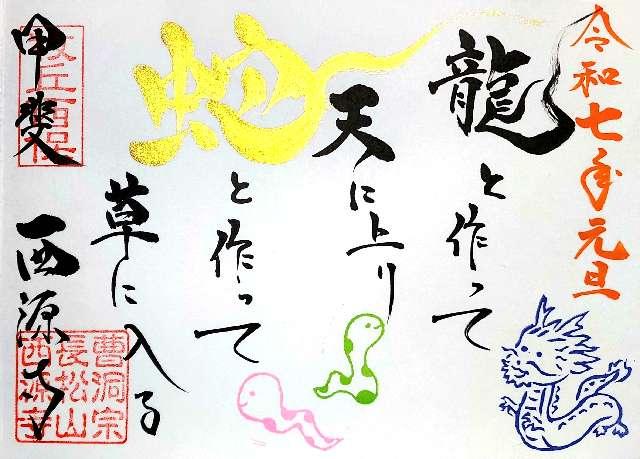 令和七年元旦
龍と作って
天に上り
蛇と作って
草に入る
甲斐 西源寺
曹洞宗
長松山
西源寺